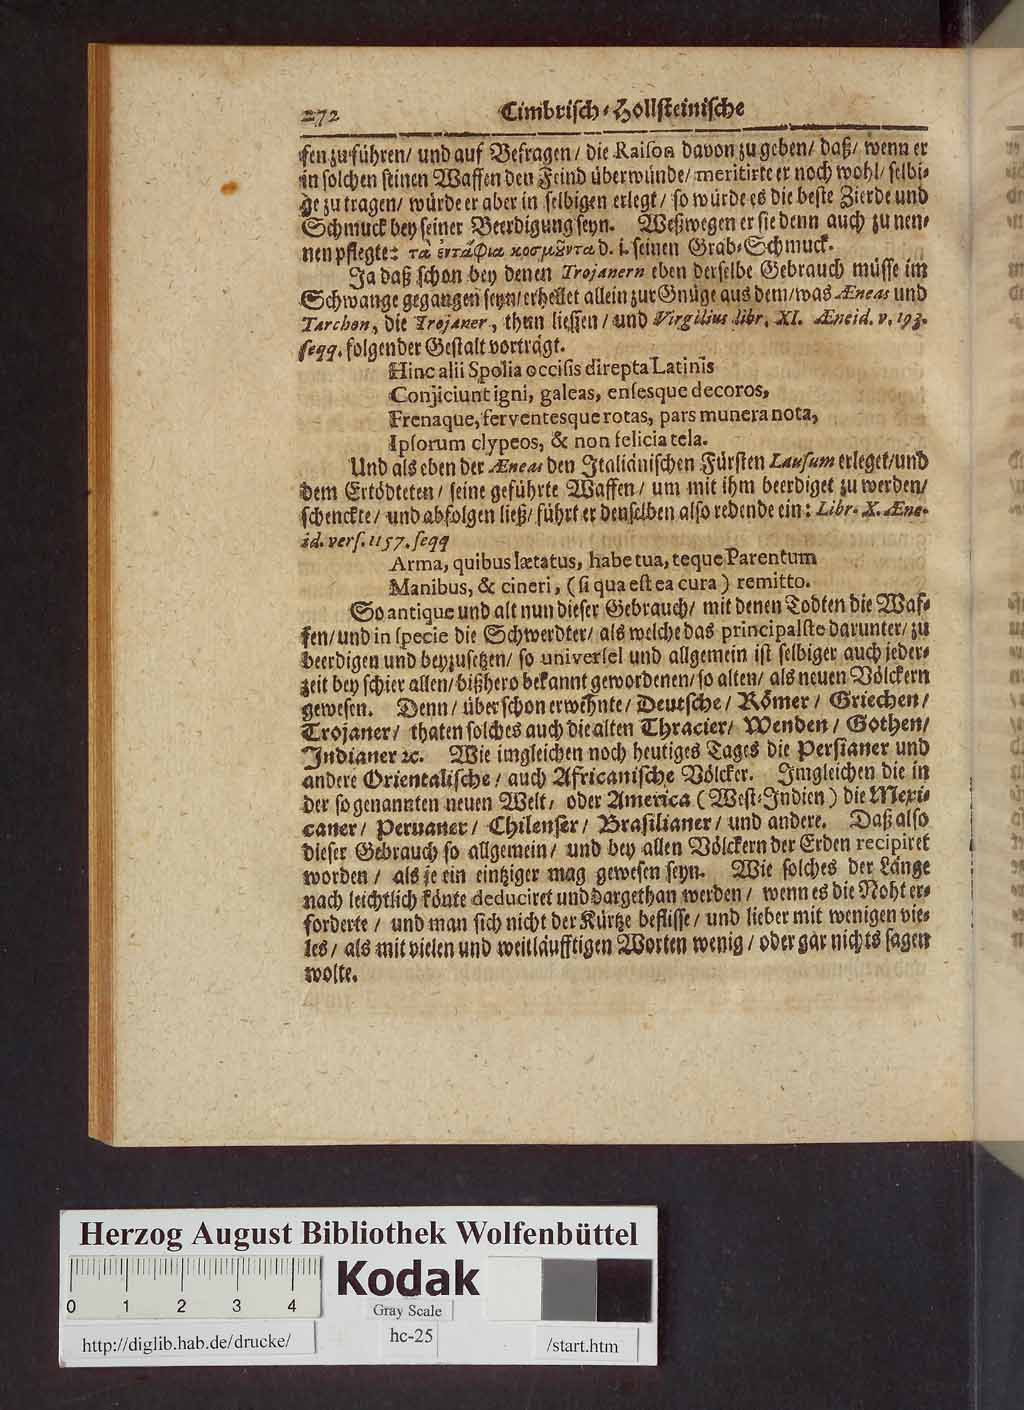 272 Cimbrisch-Hollsteinische
sen zu führen/ und auf Befragen/ die Raison davon zu geben/ daß/ wenn er
in solchen seinen Waffen den Feind überwünde/ meritirte er noch wohl/ selbi-
ge zu tragen/ würde er aber in selbigen erlegt/ so würde es die beste Zierde und
Schmuck bey seiner Beerdigung seyn. Weßwegen er sie denn auch zu nen-
nen pflegte: τὰ ἐντάφια κοσμοῦντα d. i. seinen Grab-Schmuck.
Ja daß schon bey denen Trojanern eben derselbe Gebrauch müsse im
Schwange gegangen seyn/ erhellet allein zur Gnüge aus dem/ was Æneas und
Tarchon, die Trojaner, thun liessen/ und Virgilius libr. XI. Æneid. v. 193.
seqq. folgender Gestalt vorträgt.
Hinc alii Spolia occisis direpta Latinis
Conjiciunt igni, galeas, ensesque decoros,
Frenaque, ferventesque rotas, pars munera nota,
Ipsorum clypeos, & non felicia tela.
Und als eben der Æneas den Italiänischen Fürsten Lausum erleget/ und
dem Ertödteten/ seine geführte Waffen/ um mit ihm beerdiget zu werden/
schenckte/ und abfolgen ließ/ führt er denselben also redende ein: Libr. X. Æne-
id. vers. 1157. seqq
Arma, quibus lætatus, habe tua, teque Parentum
Manibus, & cineri, (si qua est ea cura) remitto.
So antique und alt nun dieser Gebrauch/ mit denen Todten die Waf-
fen/ und in specie die Schwerdter/ als welche das principalste darunter/ zu
beerdigen und beyzusetzen/ so universel und allgemein ist selbiger auch jeder-
zeit bey schier allen/ bißhero bekannt gewordenen/ so alten/ als neuen Völckern
gewesen. Denn/ über schon erwehnte/ Deutsche/ Römer/ Griechen/
Trojaner/ thaten solches auch die alten Thracier/ Wenden/ Gothen/
Indianer ꝛc. Wie imgleichen noch heutiges Tages die Persianer und
andere Orientalische/ auch Africanische Völcker. Imgleichen die in
der so genannten neuen Welt/ oder America (West-Indien) die Mexi-
caner/ Peruaner/ Chilenser/ Brasilianer/ und andere. Daß also
dieser Gebrauch so allgemein/ und bey allen Völckern der Erden recipiret
worden/ als je ein eintziger mag gewesen seyn. Wie solches der Länge
nach leichtlich könte deduciret und dargethan werden/ wenn es die Noht er-
forderte/ und man sich nicht der Kürtze beflisse/ und lieber mit wenigen vie-
les/ als mit vielen und weitläufftigen Worten wenig/ oder gar nichts sagen
wolte.
Herzog August Bibliothek Wolfenbüttel
0 1 2 3 4
Kodak
Gray Scale
http://diglib.hab.de/drucke/ hc-25 /start.htm